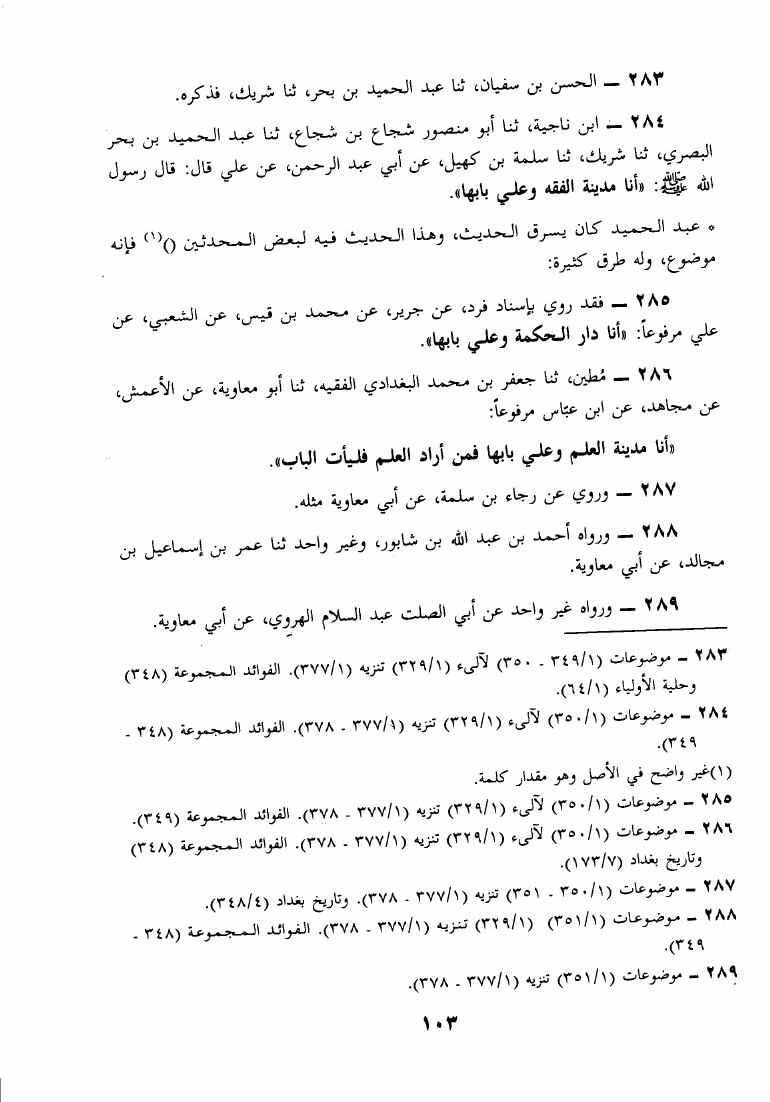 ٢٨٣ ــ الحسن بن سفيان، ثنا عبد الحميد بن بحر، ثنا شريك، فذكره.
٢٨٤ ــ ابن ناجية، ثنا أبو منصور شجاع بن شجاع، ثنا عبد الحميد بن بحر
البصري، ثنا شريك، ثنا سلمة بن كهيل، عن أبي عبد الرحمن، عن علي قال: قال رسول
الله ﷺ: «أنا مدينة الفقه وعلي بابها».
* عبد الحميد كان يسرق الحديث، وهذا الحديث فيه لبعض المحدثين ()(١) فإنه
موضوع، وله طرق كثيرة:
٢٨٥ ــ فقد روي بإسناد فرد، عن جرير، عن محمد بن قيس، عن الشعبي، عن
علي مرفوعاً: «أنا دار الحكمة وعلي بابها».
٢٨٦ ــ مُطين، ثنا جعفر بن محمد البغدادي الفقيه، ثنا أبو معاوية، عن الأعمش،
عن مجاهد، عن ابن عبّاس مرفوعاً:
«أنا مدينة العلم وعلي بابها فمن أراد العلم فليأت الباب».
٢٨٧ ــ وروي عن رجاء بن سلمة، عن أبي معاوية مثله.
٢٨٨ ــ ورواه أحمد بن عبد الله بن شابور، وغير واحد ثنا عمر بن إسماعيل بن
مجالد، عن أبي معاوية.
٢٨٩ ــ ورواه غير واحد عن أبي الصلت عبد السلام الهروي، عن أبي معاوية.
٢٨٣ ــ موضوعات (٣٤٩/١ ـ ٣٥٠) لآلىء (٣٢٩/١) تنزيه (٣٧٧/١). الفوائد المجموعة (٣٤٨)
وحلية الأولياء (٦٤/١).
٢٨٤ ــ موضوعات (٣٥٠/١) لآلىء (٣٢٩/١) تنزيه (٣٧٧/١ ـ ٣٧٨). الفوائد المجموعة (٣٤٨ ـ
٣٤٩).
(١) غير واضح في الأصل وهو مقدار كلمة.
٢٨٥ ــ موضوعات (٣٥٠/١) لآلىء (٣٢٩/١) تنزيه (٣٧٧/١ ـ ٣٧٨). الفوائد المجموعة (٣٤٩).
٢٨٦ ــ موضوعات (٣٥٠/١) لآلىء (٣٢٩/١) تنزيه (٣٧٧/١ ـ ٣٧٨). الفوائد المجموعة (٣٤٨)
وتاريخ بغداد (١٧٣/٧).
٢٨٧ ــ موضوعات (٣٥٠/١ ـ ٣٥١) تنزيه (٣٧٧/١ ـ ٣٧٨). وتاريخ بغداد (٣٤٨/٤).
٢٨٨ ــ موضوعات (٣٥١/١) (٣٢٩/١) تنزيه (٣٧٧/١ ـ ٣٧٨). الفوائد المجموعة (٣٤٨ ـ
٣٤٩).
٢٨٩ ــ موضوعات (٣٥١/١) تنزيه (٣٧٧/١ ـ ٣٧٨).
١٠٣